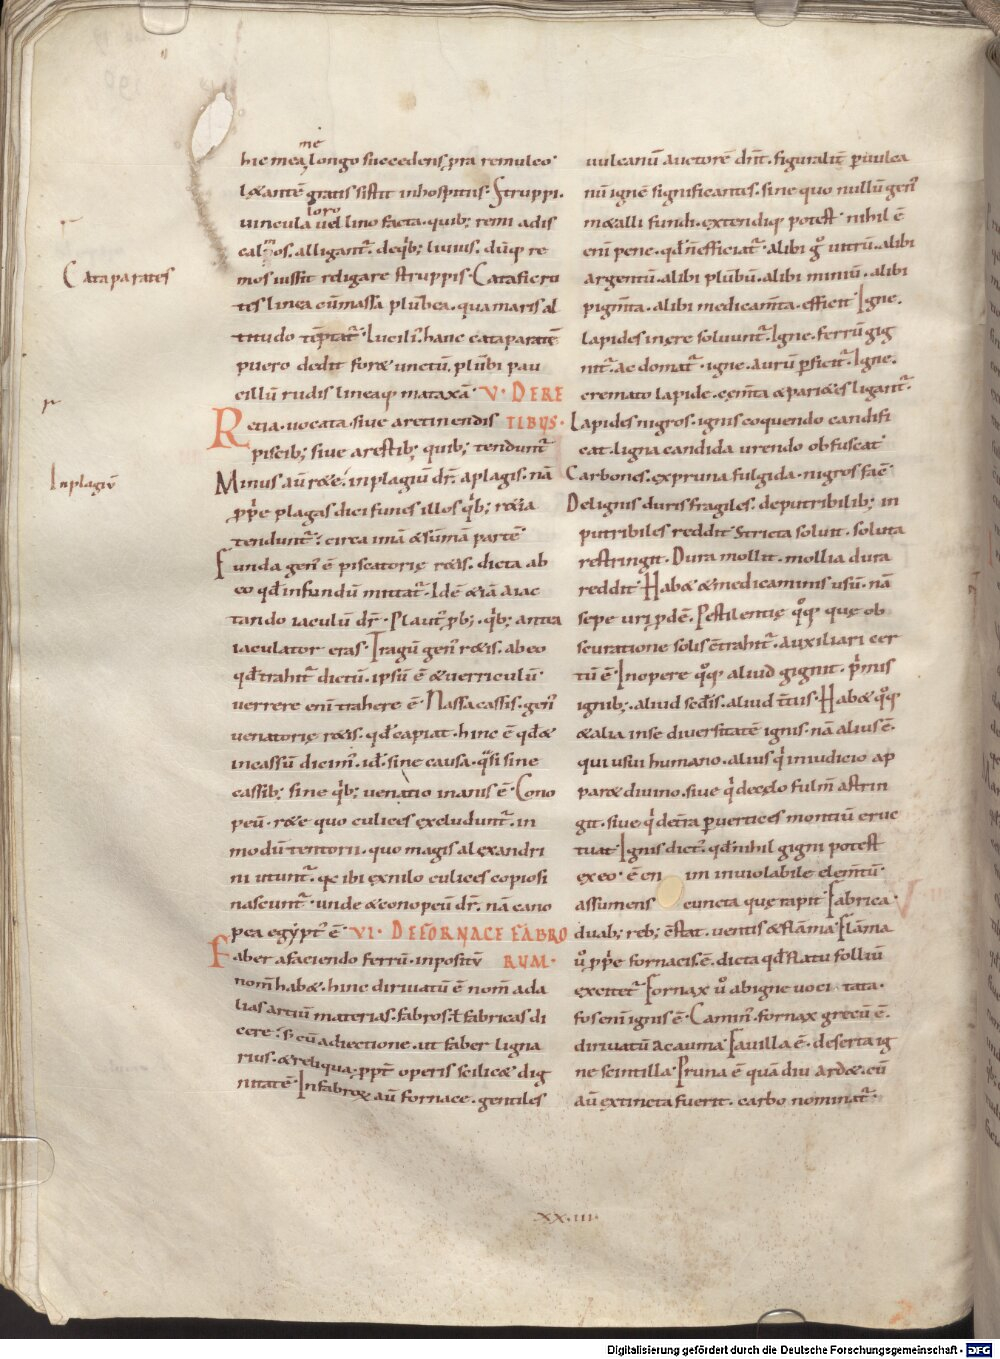 me
hic mea longo succedens pra remulco
lęantē gratis sistit inhospitus· Struppi·
loro
uincula uel lino facta· quib; remi ad s
cal mos· alligant᷑· deq̇b; liuius· dūq; re
mos iussit religare struppis· Catafiero
tes linea cū massa plūbea· qua maris al
titudo tēptat᷑· Lucili᷒· hanc cataparatē
puero dedit foræ unctū· plūbi pau
cillū rudis lineaq; mataxā· V· DE RE
TIBUS·
Retia· uocata· siue a retinendis
piscib; siue a restib; quib; tendunt᷑
Minus aū ræe· inplagiū dr̄· a plagis· nā
ꝓp̄e plagas dici funes illos q̇b; rætia
tendunt᷑· circa imā & sūmā partē
Funda gen᷒ ē piscatorię ræis· dicta ab
eo qđ in fundū mittat᷑· Idē & iā a iac
tando iaculū dr̄· Plaut᷒ ꝓb; q̇b; antea
iaculator eras· Tragū gen᷒ ræis· ab eo
qđ trahit᷑ dictū· ipsū ē & uerriculū·
uerrere enī trahere ē· Nassa cassis· gen᷒
uenatorię ræis· qđ capiat· hinc ē qđ &
incassū dicim᷒· id· sine causa· q̄si sine
cassib; sine q̇b; uenatio inanis ē· Cono
peū· ræe quo culices excludunt᷑· in
modū tentorii· quo magis alexandri
ni utunt᷑· qe ibi ex nilo culices copiosi
nascunt᷑· unde & conopeū dr̄· nā cano
pea egypt᷒ ē· VI· DE FORNACE FABRO
RUM·
Faber a faciendo ferrū· inpositū
nom̄ habæ· hinc diriuatū ē nom̄ ad a
lias artiū materias· fabros· ł fabricas di
cere· s; cū adiectione· ut faber ligna
rius· & reliqua· ꝓpt̄ operis scilicæ dig
nitatē· In fabroꝝ aū fornace· gentiles
uulcanū auctorē dnt̄· figuralit̄ ꝑ uulca
nū ignē significantes· sine quo nullū gen᷒
mætalli fundi· extendiq; potest· nihil ē
enī pene· qđ n̄ efficiat᷑· alibi g̊ uitrū· alibi
argentū· alibi plūbū· alibi miniū· alibi
pigm̄ta· alibi medicam̄ta· efficit· Igne·
lapides in ęre soluunt᷑· Igne· ferrū gig
nit᷑· ac domat᷑· igne· aurū ꝑficit᷑· Igne·
cremato lapide· cem̄ta & pariætes ligant᷑·
Lapides nigros· ignis coquendo candifi
cat· ligna candida urendo obfuscat·
Carbones· ex pruna fulgida· nigros fac̄
De lignis duris fragiles· de putribilib; in
putribiles reddit· Stricta soluit· soluta
restringit· Dura mollit· mollia dura
reddit· Habæ & medicaminis usū· nā
sępe uri ꝓdē· Pestilentię q̊q; quę ob
scuratione solis c̄trahit᷑· auxiliari cer
tū ē· In opere q̊q; aliud gignit· p̄mis
ignib; aliud sed̄is· aliud t̄tiis· Habæ q̊q;
& alia in se diuersitatē ignis· nā alius ē·
qui usui humano· alius q̇ in iudicio ap
paræ diuino· siue q̇ de cęlo fulm̄ astrin
git· siue q̇ de t̄ra ꝑ uertices montiū eruc
tuat· Ignis dict᷒· qđ nihil gigni potest
ex eo· ē en im inuiolabile elem̄tū·
assumens cuncta quę rapit· Fabrica·
duab; reb; c̄stat· uentis & flāma· Flāma
ů ꝓp̄e fornacis ē· dicta qđ flatu folliū
excitet᷑· Fornax ů ab igne uoci tata·
fos enī ignis ē· Camin᷒· fornax grecū ē·
diriuatū a cauma· Fauilla ē· deserta ig
ne scintilla· Pruna ē quā diu ardæ· cū
aū extincta fuerit· carbo nominat᷑·
Cataparates
Inplagiū
XX·III·
Digitalisierung gefördert durch die Deutsche Forschungsgemeinschaft - DFG